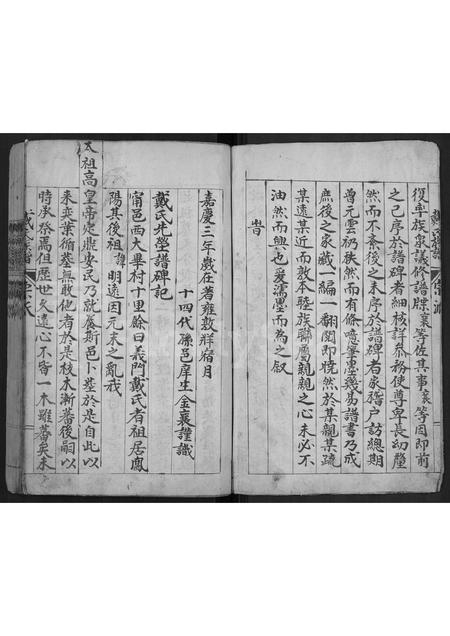 復率族衆議修譜牒襄等佐其事襄等因即前
之已序於譜碑者細核詳參務使尊卑長幼釐
然而不紊後之未序於譜碑者家稽户訪總期
曾元雲礽秩然而有條噫墨幾易譜書乃成
庶後之家藏一編一翻閱即恍然於某親某疏
某遠某近而敦本睦族聯屬親親之心未必不
油然而興也爰濡墨而為之叙
旹
嘉慶三年歲在著雍敦牂宿月
十四代孫邑庠生金襄謹識
戴氏先塋譜碑記
甯邑西大畢村十里餘曰義門戴氏者祖居鳳
陽其後祖諱明遠因元末之亂我
太祖高皇帝定鼎安民乃就養斯邑卜塋於是自此以
來奕葉循墓無敢他者於是枝木漸蕃後嗣以
時承祭焉但歷世久遠心不啻一本雖蕃矣未